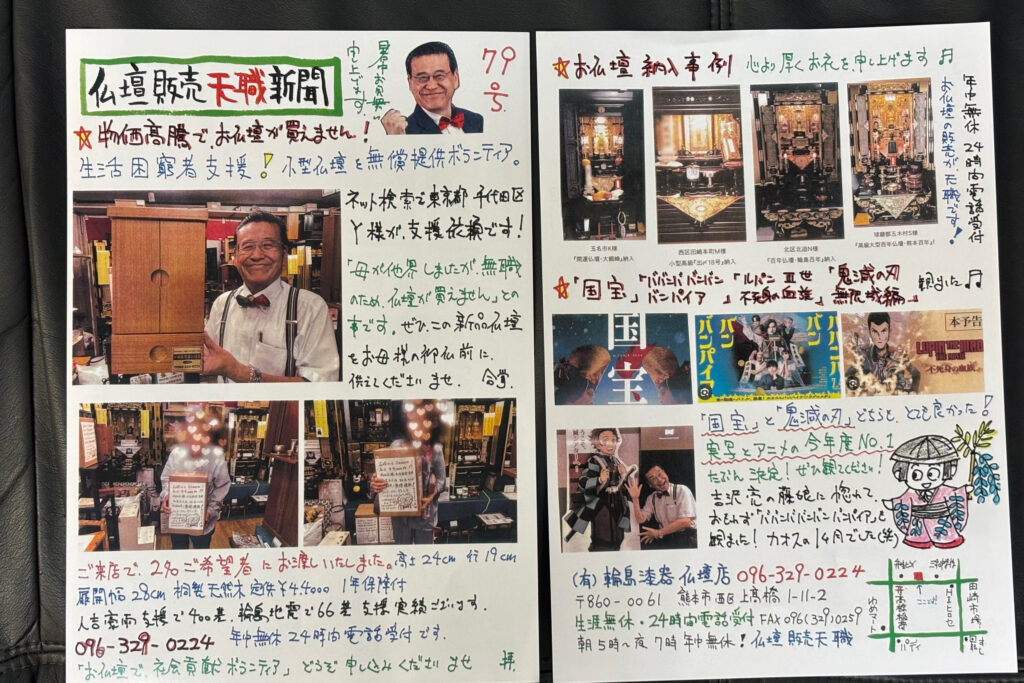 仏壇販売天職新聞
暑中お見舞い
申し上げます
79
☆物価高騰で、お仏壇が買えません。!
生活困窮者支援!小型仏壇を無償提供ボランティア。
ネット検索で東京都千代田区
Y様が、支援依頼です!
「母が他界しましたが、無職
のため、仏壇が買えません」との
事です。ぜひ、この新品仏壇
をお母様の御仏前に、
供えてくださいませ。合掌。
ご来店で、2名ご希望者にお渡しいたしました。高さ24cm 行19cm
扉開幅28cm 桐製天然木 定価¥44,000 1年保障付
人吉豪雨支援で400基、輪島地震で66基支援実績ございます。
096-329-0224 年中無休24時間電話受付です。
「お仏壇で、社会貢献ボランティア」どうぞ申し込みくださいませ 拝
☆お仏壇納入事例 心より厚くお礼を申し上げます♬
年中無休 24時間電話受付
お仏壇の販売が天職です!
玉名市K様
「開運仏壇・大銀峰」納入
西区田崎本町M様
小型高級「出〆18号」納入
北区北迫N様
「百年仏壇・輪島百年」納入
球磨郡五木村S様
「高級大型百年仏壇・熊本百年」
☆「国宝」「ババンババンバンバンパイア」「ルパン三世 不死身の血族」「鬼滅の刃 無限城編」観ました♬
国宝
ババンババンバンバンパイア
本予告
LUPIN THE IIIRD
不死身の血族
「国宝」と「鬼滅の刃」どちらも、とても良かった!
実写とアニメの今年度NO.1
たぶん決定!ぜひ観てください!
吉沢亮の藤娘に惚れて、
おもわず「ババンババンバンバンパイア」も
観ました!カオスの1ヶ月でした(笑)
(有)輪島漆器仏壇店 096-329-0224
〒860-0061 熊本市西区上高橋1-11-2
生涯無休・24時間電話受付 FAX096(329)0259
朝5時〜夜7時 年中無休!仏壇販売天職
ここ!
ゆめマート
田崎市場